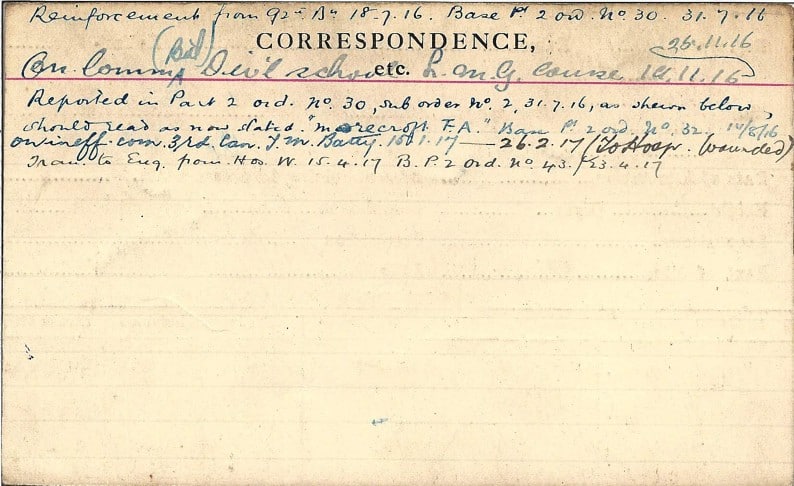 Reinforcement from 92nd Bn 18-7-16. Base Pt 2 ord. No. 30. 31-7-16
CORRESPONDENCE,
(Bd) 26.11.16
On Comm^d Div'l school etc. L.M.G. course 19.11.16
Reported in Part 2 ord. No. 30, sub order No. 2, 31.7.16, as shewn below,
should read as now stated. "Morecroft F.A." Base Pt 2 ord. No. 32. 14/8/16
on ineff. com. 3rd. Can. T.M. Batty. 15.1.17 — 26.2.17 (To Hosp. Wounded)
Trans. to Eng. from Hos. W. 15.4.17 B.P. 2 ord. No 43. / 23.4.17